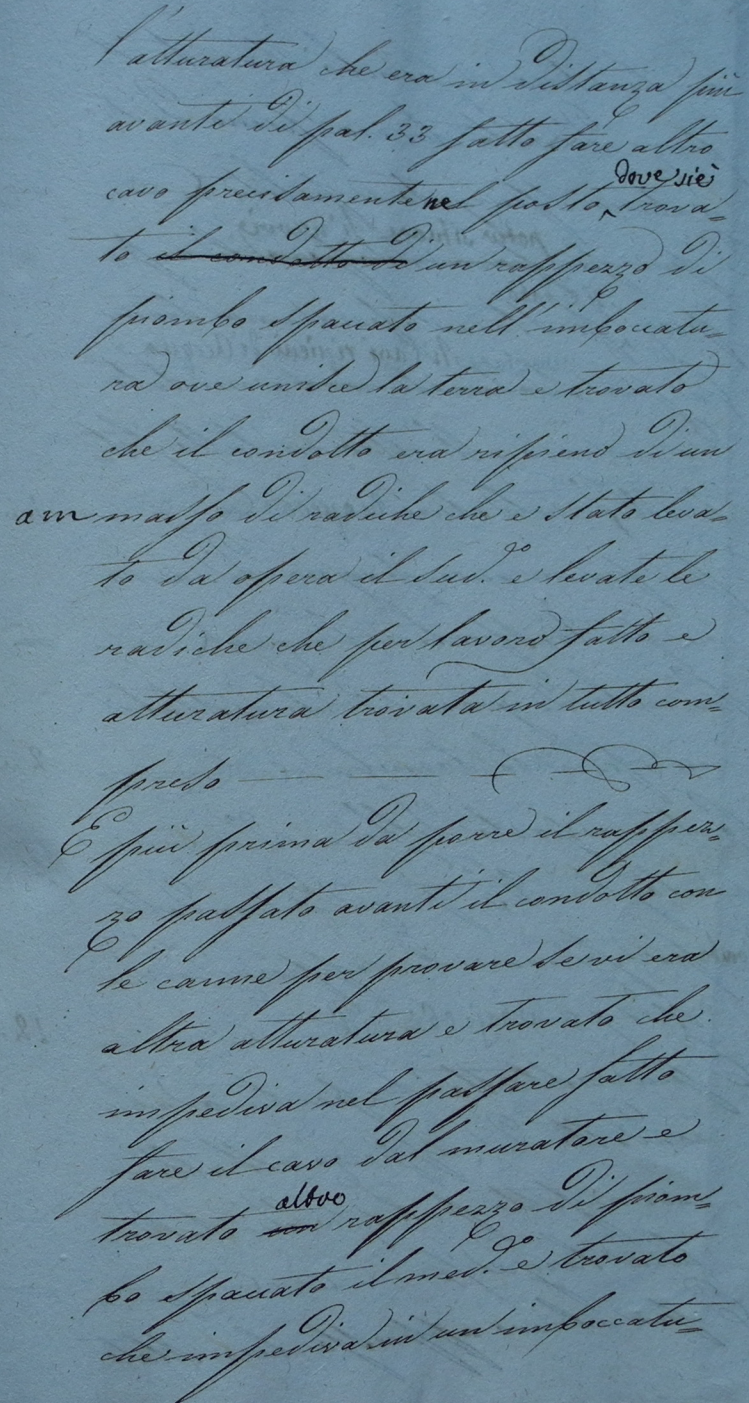 l'atturatura che era in distanza più
avanti di pal. 33 fatto fare altro
cavo precisamente nel posto, dove si è trova=
to il condotto di un rappezzo di
piombo spaccato nell'imboccatu=
ra ove unisce la terra e trovato
che il condotto era ripieno di un
am masso di radiche che e stato leva=
to da opera il sud.º e levate le
radiche che per lavoro fatto e
atturatura trovata in tutto com=
preso
E più prima da porre il rappez=
zo passato avanti il condotto con
le canne per provare se vi era
altra atturatura e trovato che
impediva nel passare fatto
fare il cavo dal muratore e
trovato un altro rappezzo di piom=
bo spaccato il med.º e trovato
che impediva in un imboccatu=